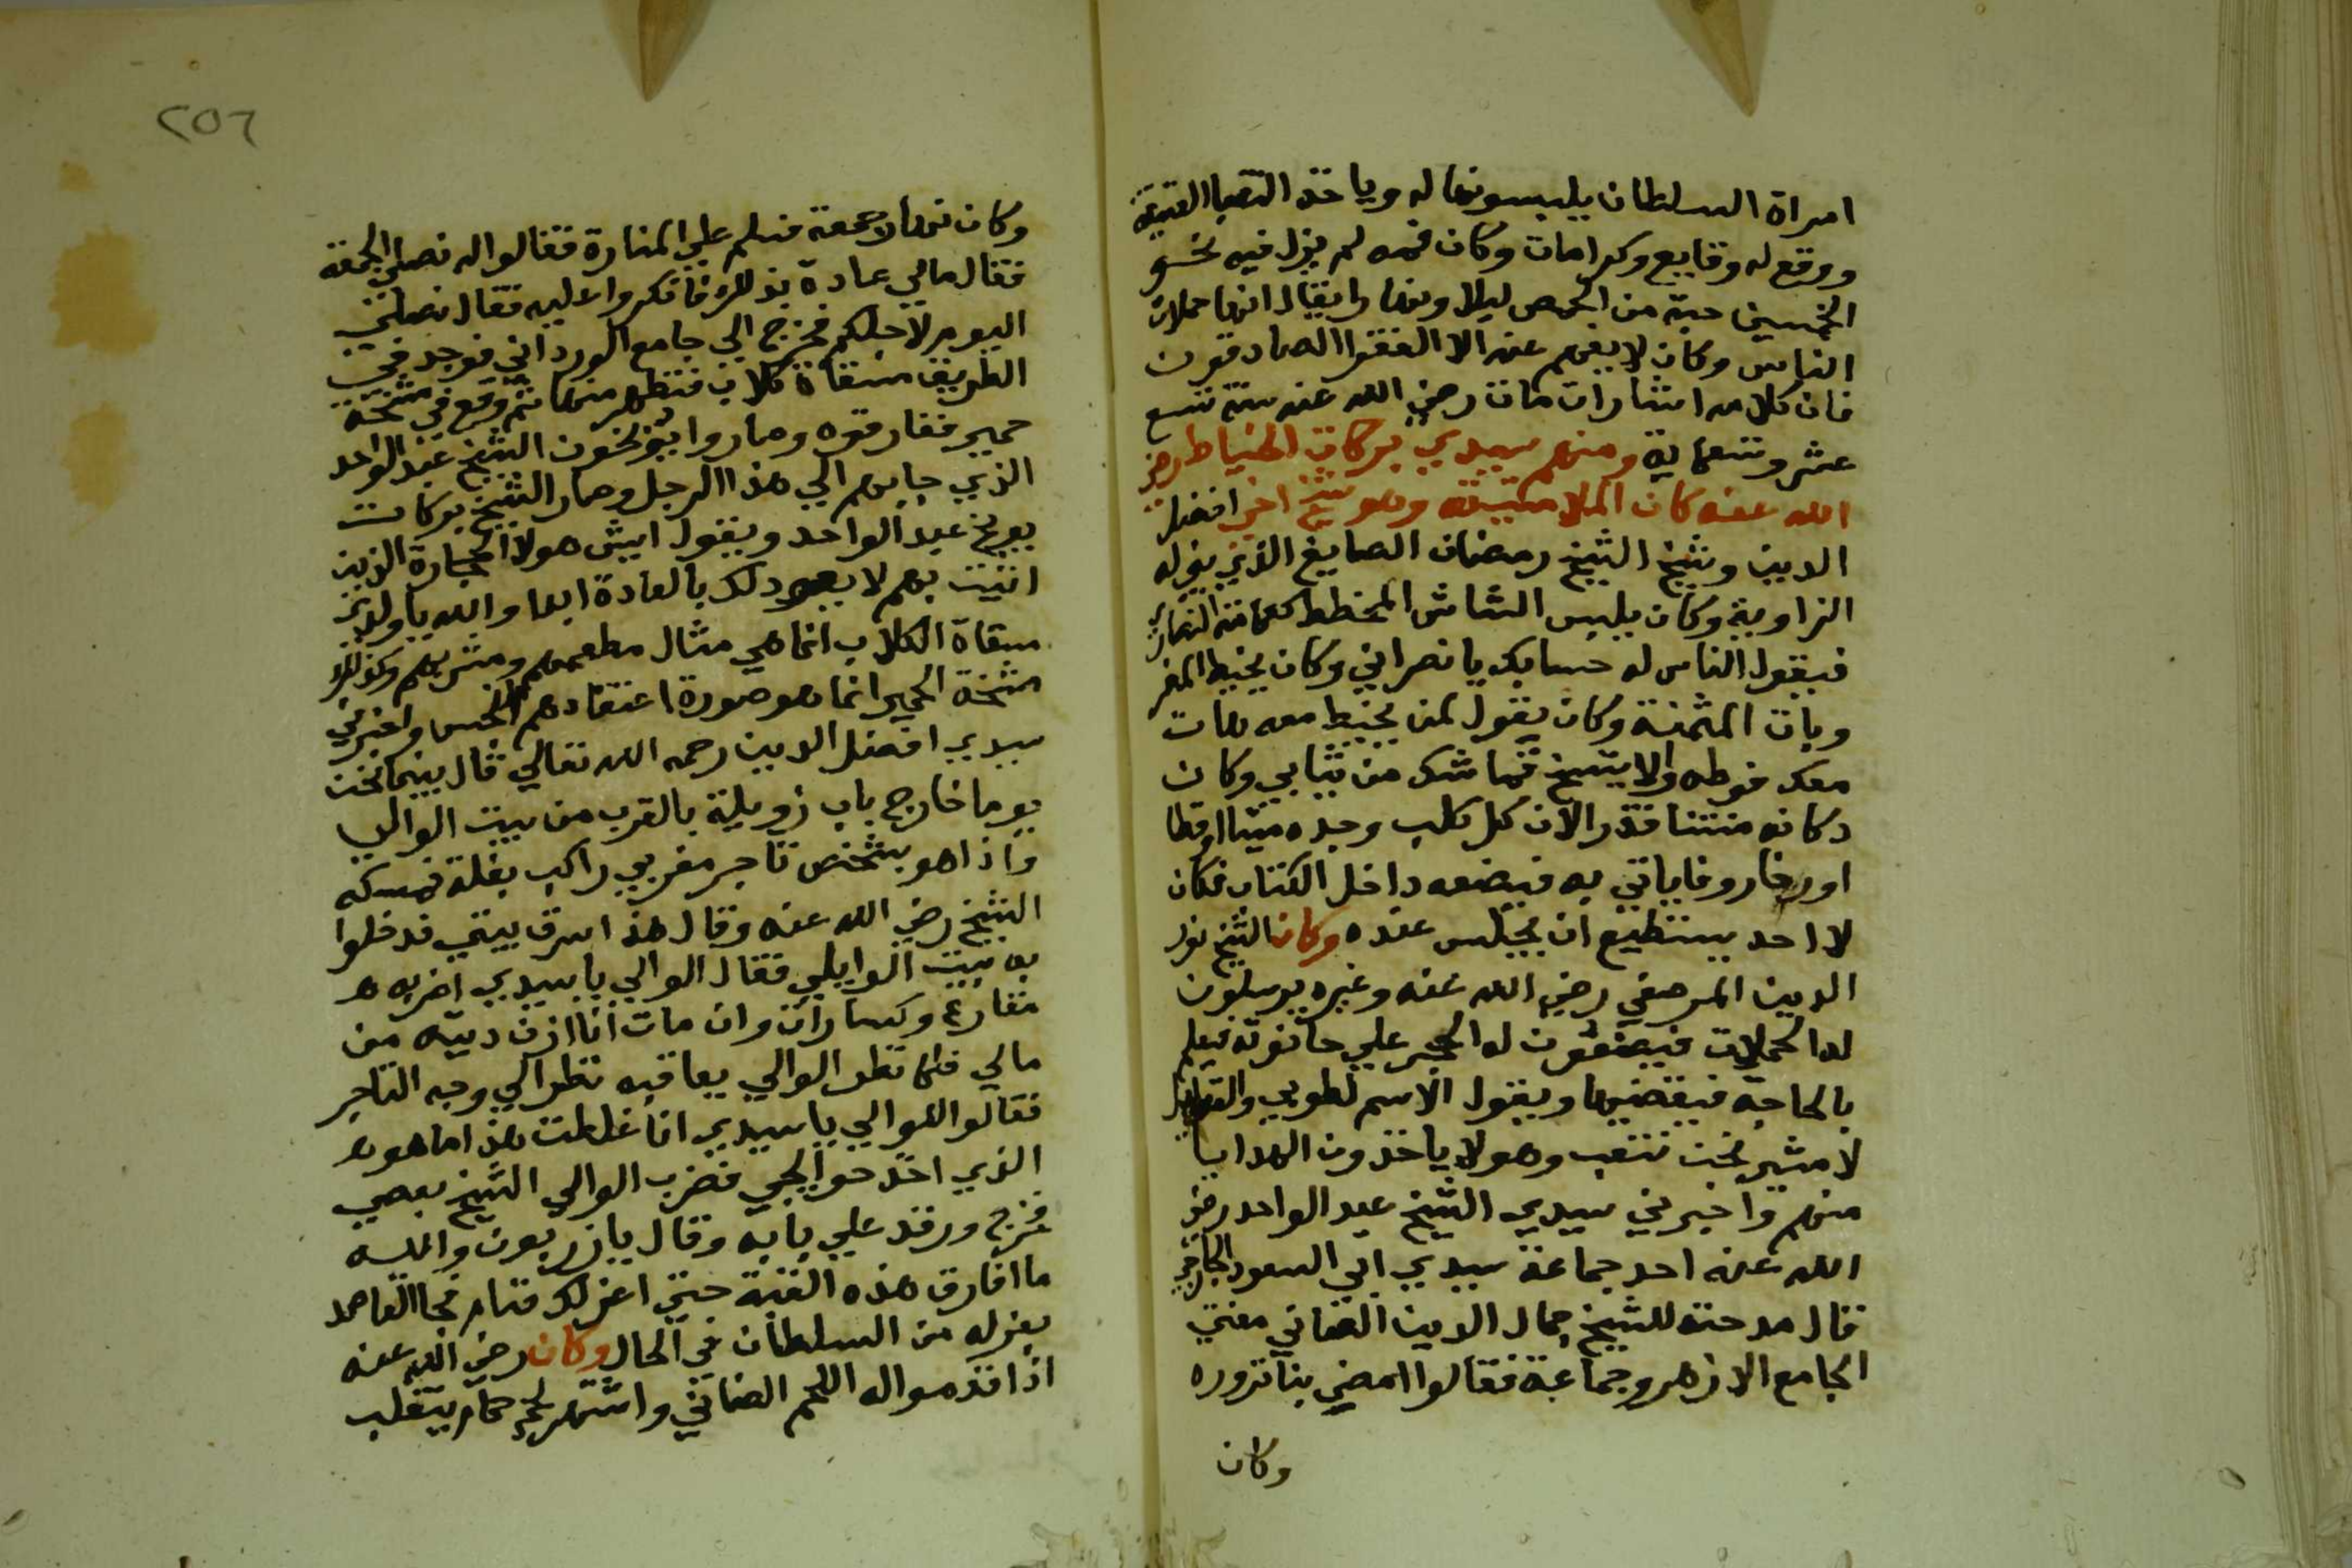 امراة السلطان يلبسونها له وياخذ الثياب القديمة
ووقع له وقايع وكرامات وكان فمه لم يزل فيه نحو
الخمسين حبة من الحمص ليلا ونهارا يقال انها حملات
الناس وكان لا يفهم عنه الا الفقرا الصادقون
فان كلامه اشارات مات رضي الله عنه سنة تسع
عشر وتسعماية ومنهم سيدي بركات الخياط رضي
الله عنه كان الملامتية وهو شيخ اخي افضل
الدين وشيخ الشيخ رمضان الصايغ الذي بني له
الزاوية وكان يلبس الشاش المخطط كعمامة النصاري
فيقول الناس له حسابك يا نصراني وكان يخيط المضر
وبات المثمنة وكان يقول لمن يخيط معه هات
معك فوطه والا يتسخ قماشك من ثيابي وكان
دكانه منتنا قذرا لان كل كلب وجده ميتا او قطا
او خاروفا ياتي به فيضعه داخل الدكان فكان
لا احد يستطيع ان يجلس عنده وكان الشيخ نور
الدين المرصفي رضي الله عنه وغيره يرسلون
له الحملات فيضعون له الحجر علي حانوته فيعلم
بالحاجة فيقضيها ويقول الاسم لطوبي والفعايل
لامشير نحن نتعب وهولا ياخذون الهدايا
منهم واخبرني سيدي الشيخ عبد الواحد رضي
الله عنه احد جماعة سيدي ابي السعود الجارحي
قال مدحته للشيخ جمال الدين الصاني مفتي
الجامع الازهر وجماعة فقالوا امضي بنا نزوره
وكان
٢٥٦
وكان نهار جمعة فسلم علي المنارة فقالوا له نصلي الجمعة
فقال مالي عادة بذلك فانكروا عليه فقال نصلي
اليوم لاجلكم فخرج الي جامع المارداني فوجد في
الطريق مسقاة كلاب فتطهر منها ثم وقع في مشخة
حمير ففارقوه وصاروا يوبخون الشيخ عبد الواحد
الذي جا بهم الي هذا الرجل وصار الشيخ بركات
يوبخ عبد الواحد ويقول ايش هولا الحجارة الذين
اتيت بهم لا يعود لك بالعادة ابدا والله يا ولدي
مسقاة الكلاب انما هي مثال مطعمهم ومشربهم وكذلك
مشخة الحمير انما هو صورة اعتقادهم النجس واخبرني
سيدي افضل الدين رحمه الله تعالي قال بينما نحن
يوما خارج باب زويلة بالقرب من بيت الوالي
واذا هو بشخص تاجر مغربي راكب بغلة فمسكه
الشيخ رضي الله عنه وقال هذا سرق بيتي فدخلوا
به بيت الوالي فقال الوالي يا سيدي اضربه
مقارع وكسارات وان مات انا ازن ديته من
مالي فلما نظر الوالي يعاقبه نظر الي وجه التاجر
فقالوا للوالي يا سيدي انا غلطت هذا ما هو
الذي اخذ حوايجي فضرب الوالي الشيخ بعصي
فخرج ورقد علي بابه وقال يا زربون والله
ما افارق هذه العتبة حتي اعزلك فقام فجا القاصد
بعزله من السلطان في الحال وكان رضي الله عنه
اذا قدموا له اللحم الضاني واشتهي لحم حمام ينقلب